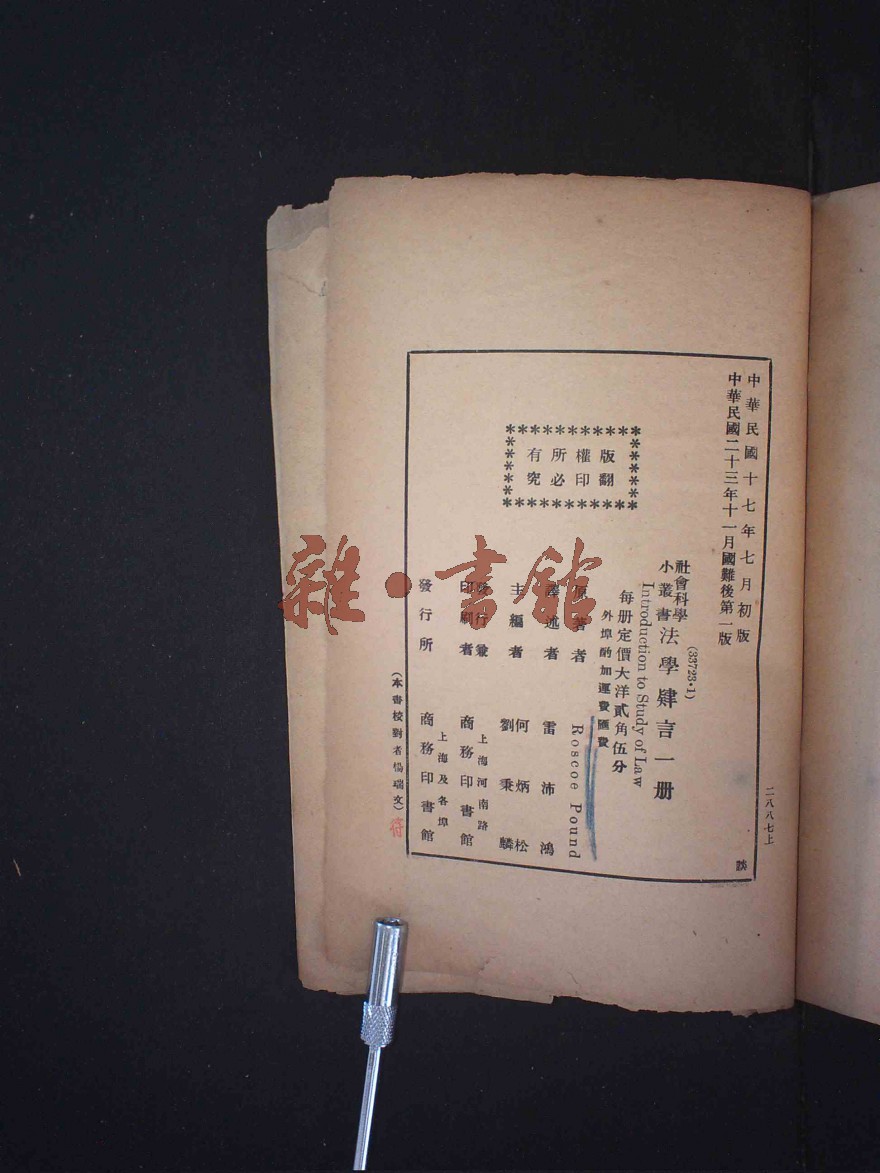 中華民國十七年七月初版
中華民國二十三年十一月國難後第一版
二八八七上
談
(33723·1)
社會科學
小叢書
法學肄言一册
Introduction to Study of Law
每册定價大洋貳角伍分
外埠酌加運費匯費
版權所有
翻印必究
原著者 Roscoe Pound
譯述者 雷沛鴻
主編者 何炳松
劉秉麟
發行兼
印刷者
上海河南路
商務印書館
發行所
上海及各埠
商務印書館
(本書校對者楊瑞文)
雜·書館